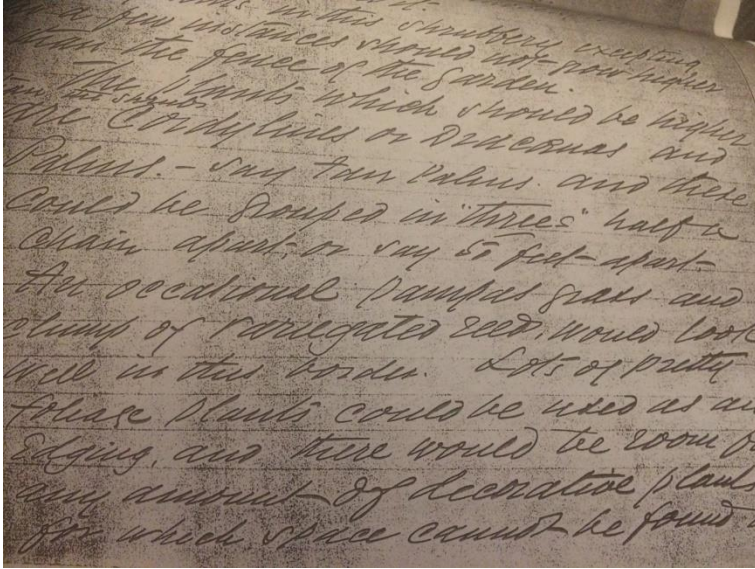 in this shrubbery excepting
a few instances should not grow higher
than the fence of the garden.
The plants which should be higher
than the shrubs
are Cordylines or Dracaenas and
Palms. – say Fan Palms. and these
could be grouped in "threes" half a
chain apart, or say 50 feet apart.
An occasional pampas grass and
clump of variegated reed, would look
well in this border. Lots of pretty
foliage plants could be used as an
Edging, and there would be room
any amount of decorative plants
for which space cannot be found